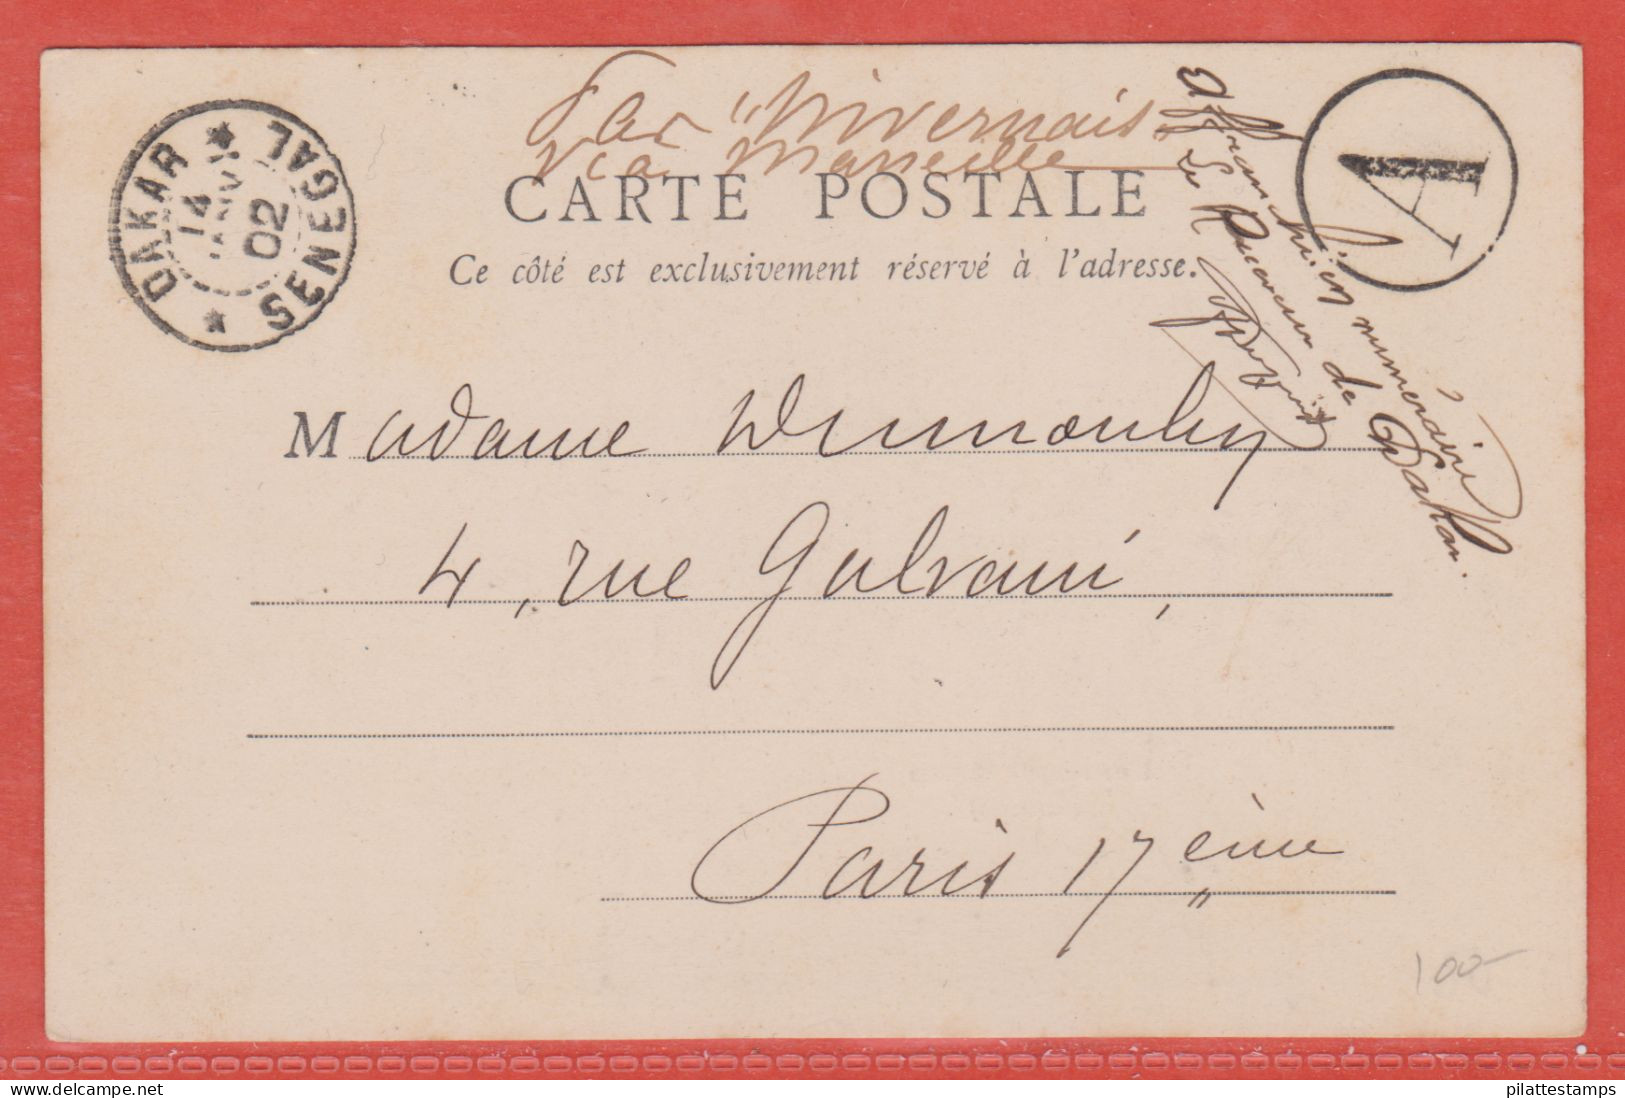 Par "Nivernais"
via Marseille
CARTE POSTALE
Ce côté est exclusivement réservé à l'adresse.
DAKAR
14
JANV
02
SENEGAL
A
Affranchi en numéraire
Le Receveur de Dakar.
Madame Dumoulin
4, rue Galvani,
Paris 17 ème
100-
delcampe.net
pilattestamps